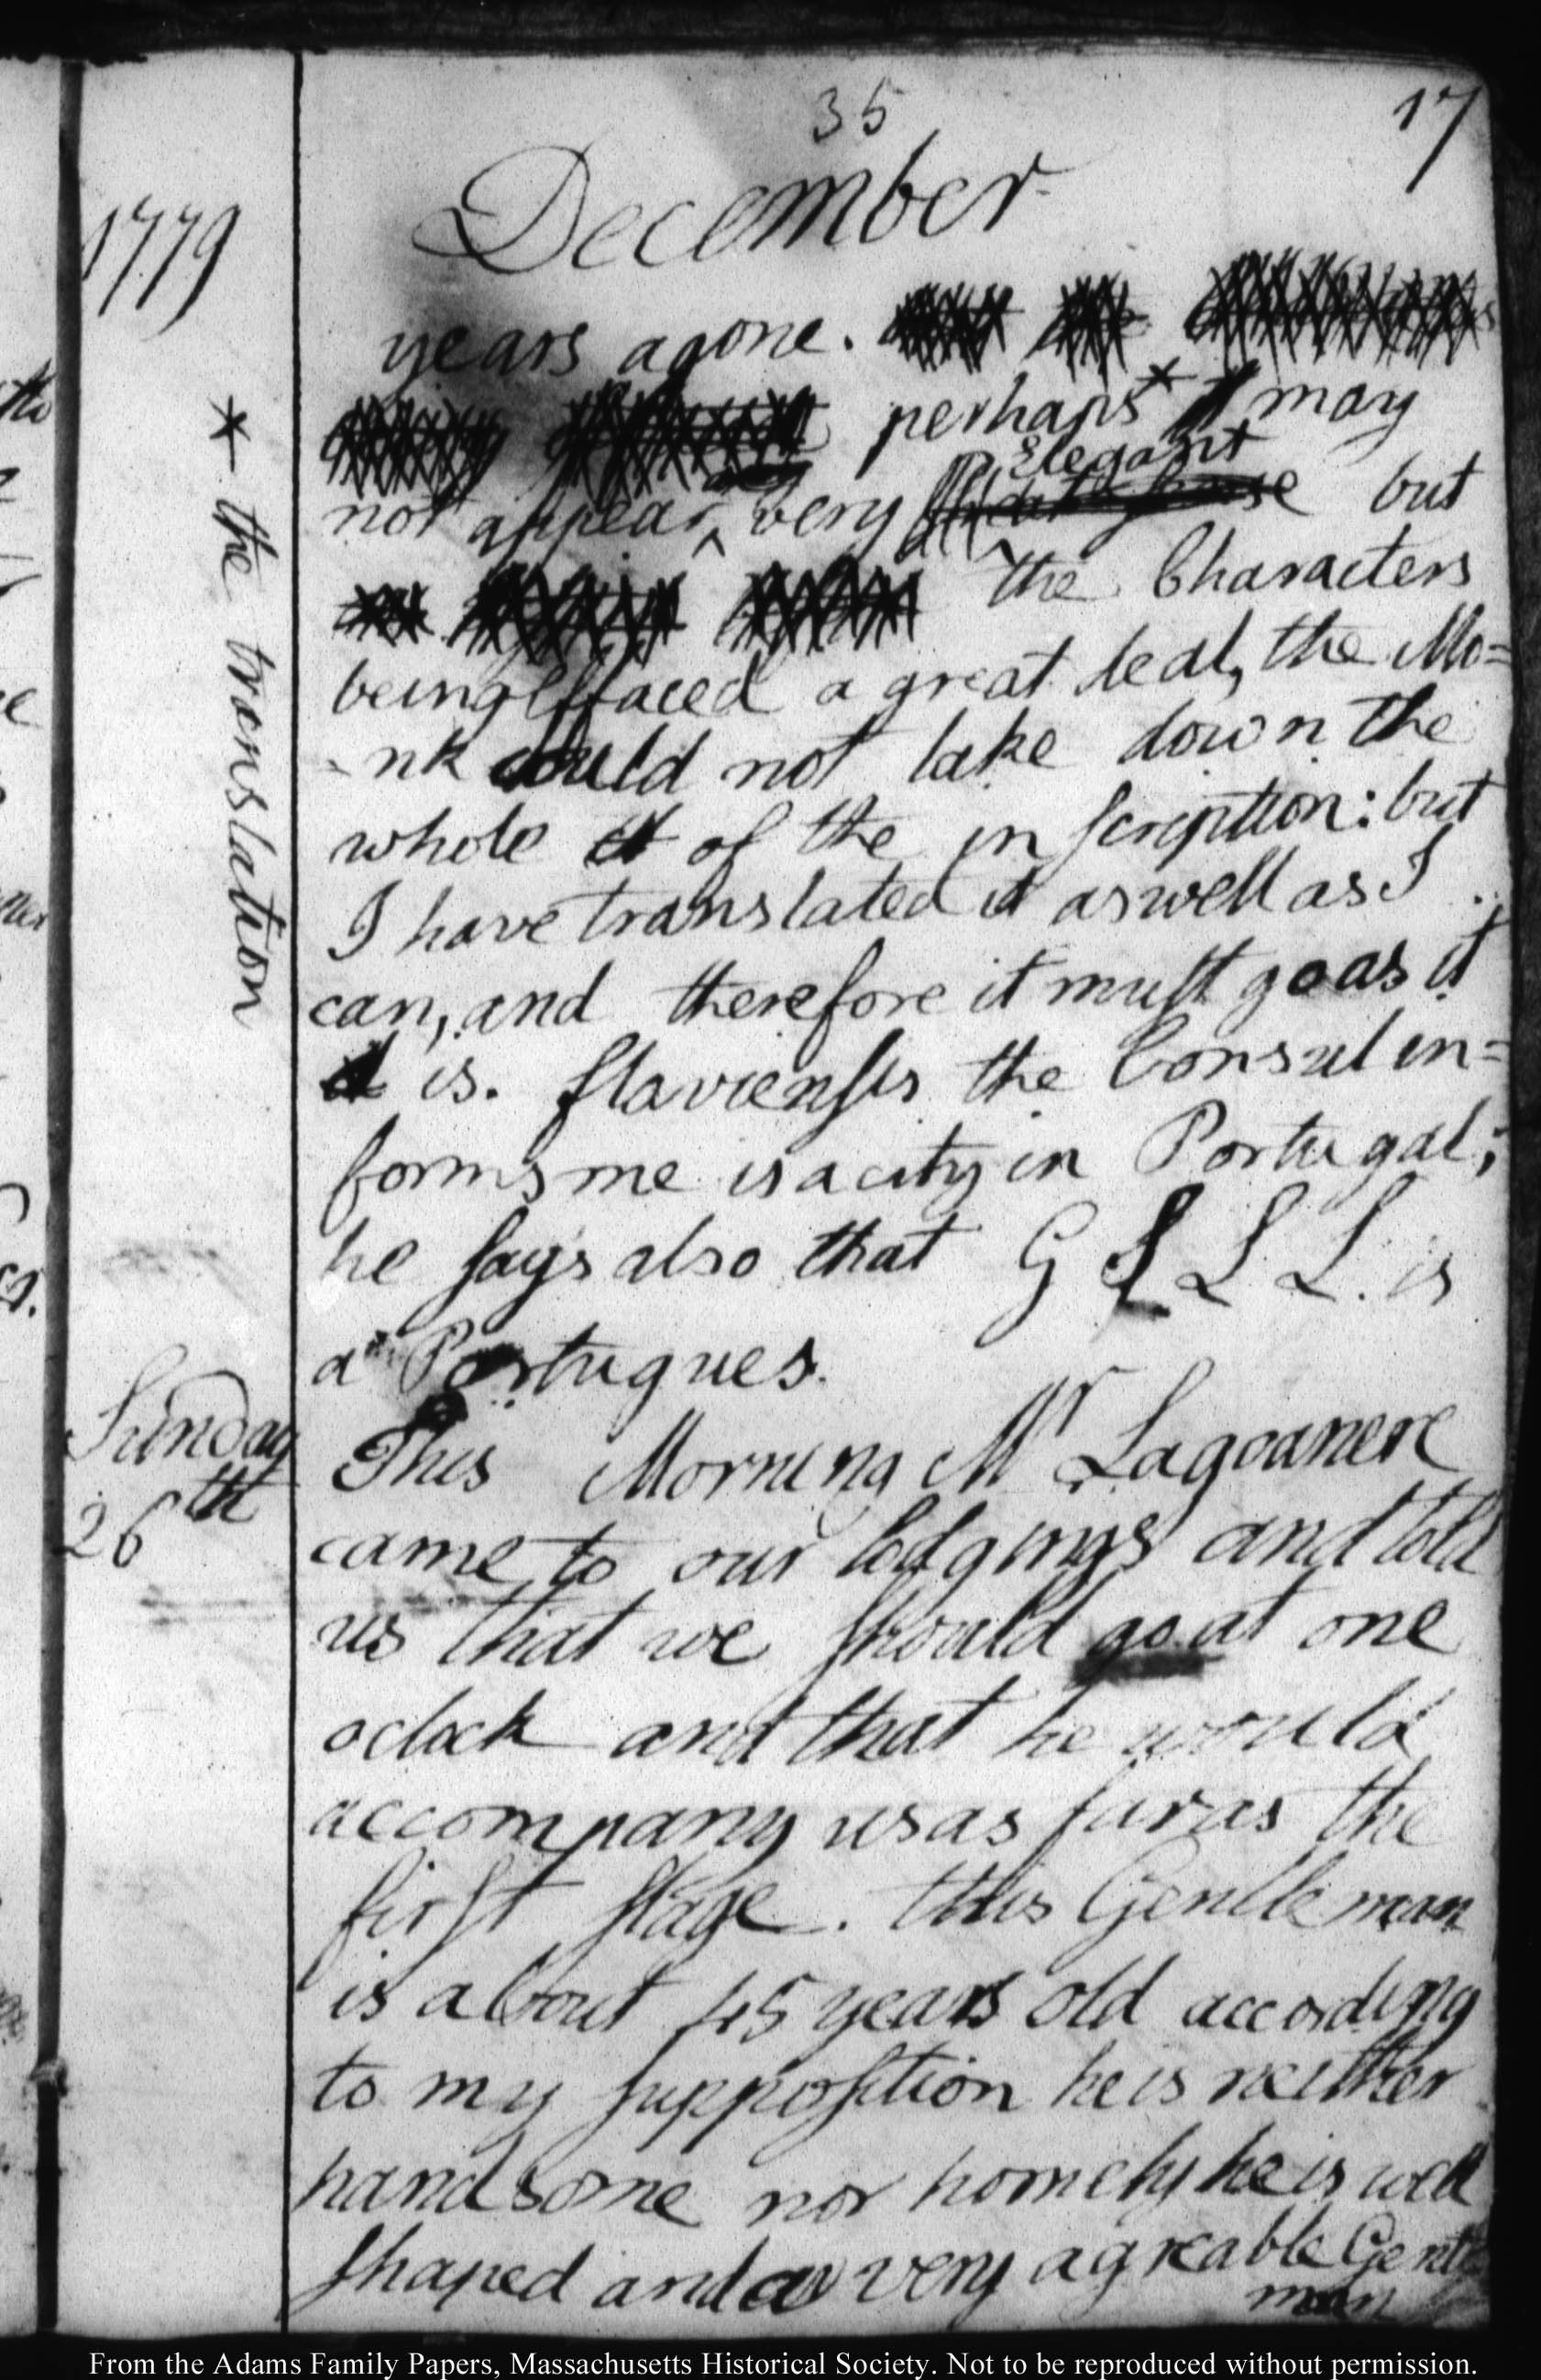 35
17
December
1779
years agone.
perhaps* it may
Elegant
not appear ^ very but
the Characters
being effaced a great deal, the Mo=
-nk could not take down the
whole of the inscription: but
I have translated it as well as I
can, and therefore it must go as it
is. flaviensis the Consul in=
forms me is a city in Portugal;
he says also that G L L L. is
a Portugues.
* the translation
Sunday
26th
This Morning Mr Lagoanere
came to our lodgings and told
us that we should go at one
oclock and that he would
accompany us as far as the
first stage. this Gentleman
is about 45 years old according
to my supposition he is neither
handsome nor homely he is well
shaped and a very agreable Gentle
man
From the Adams Family Papers, Massachusetts Historical Society. Not to be reproduced without permission.